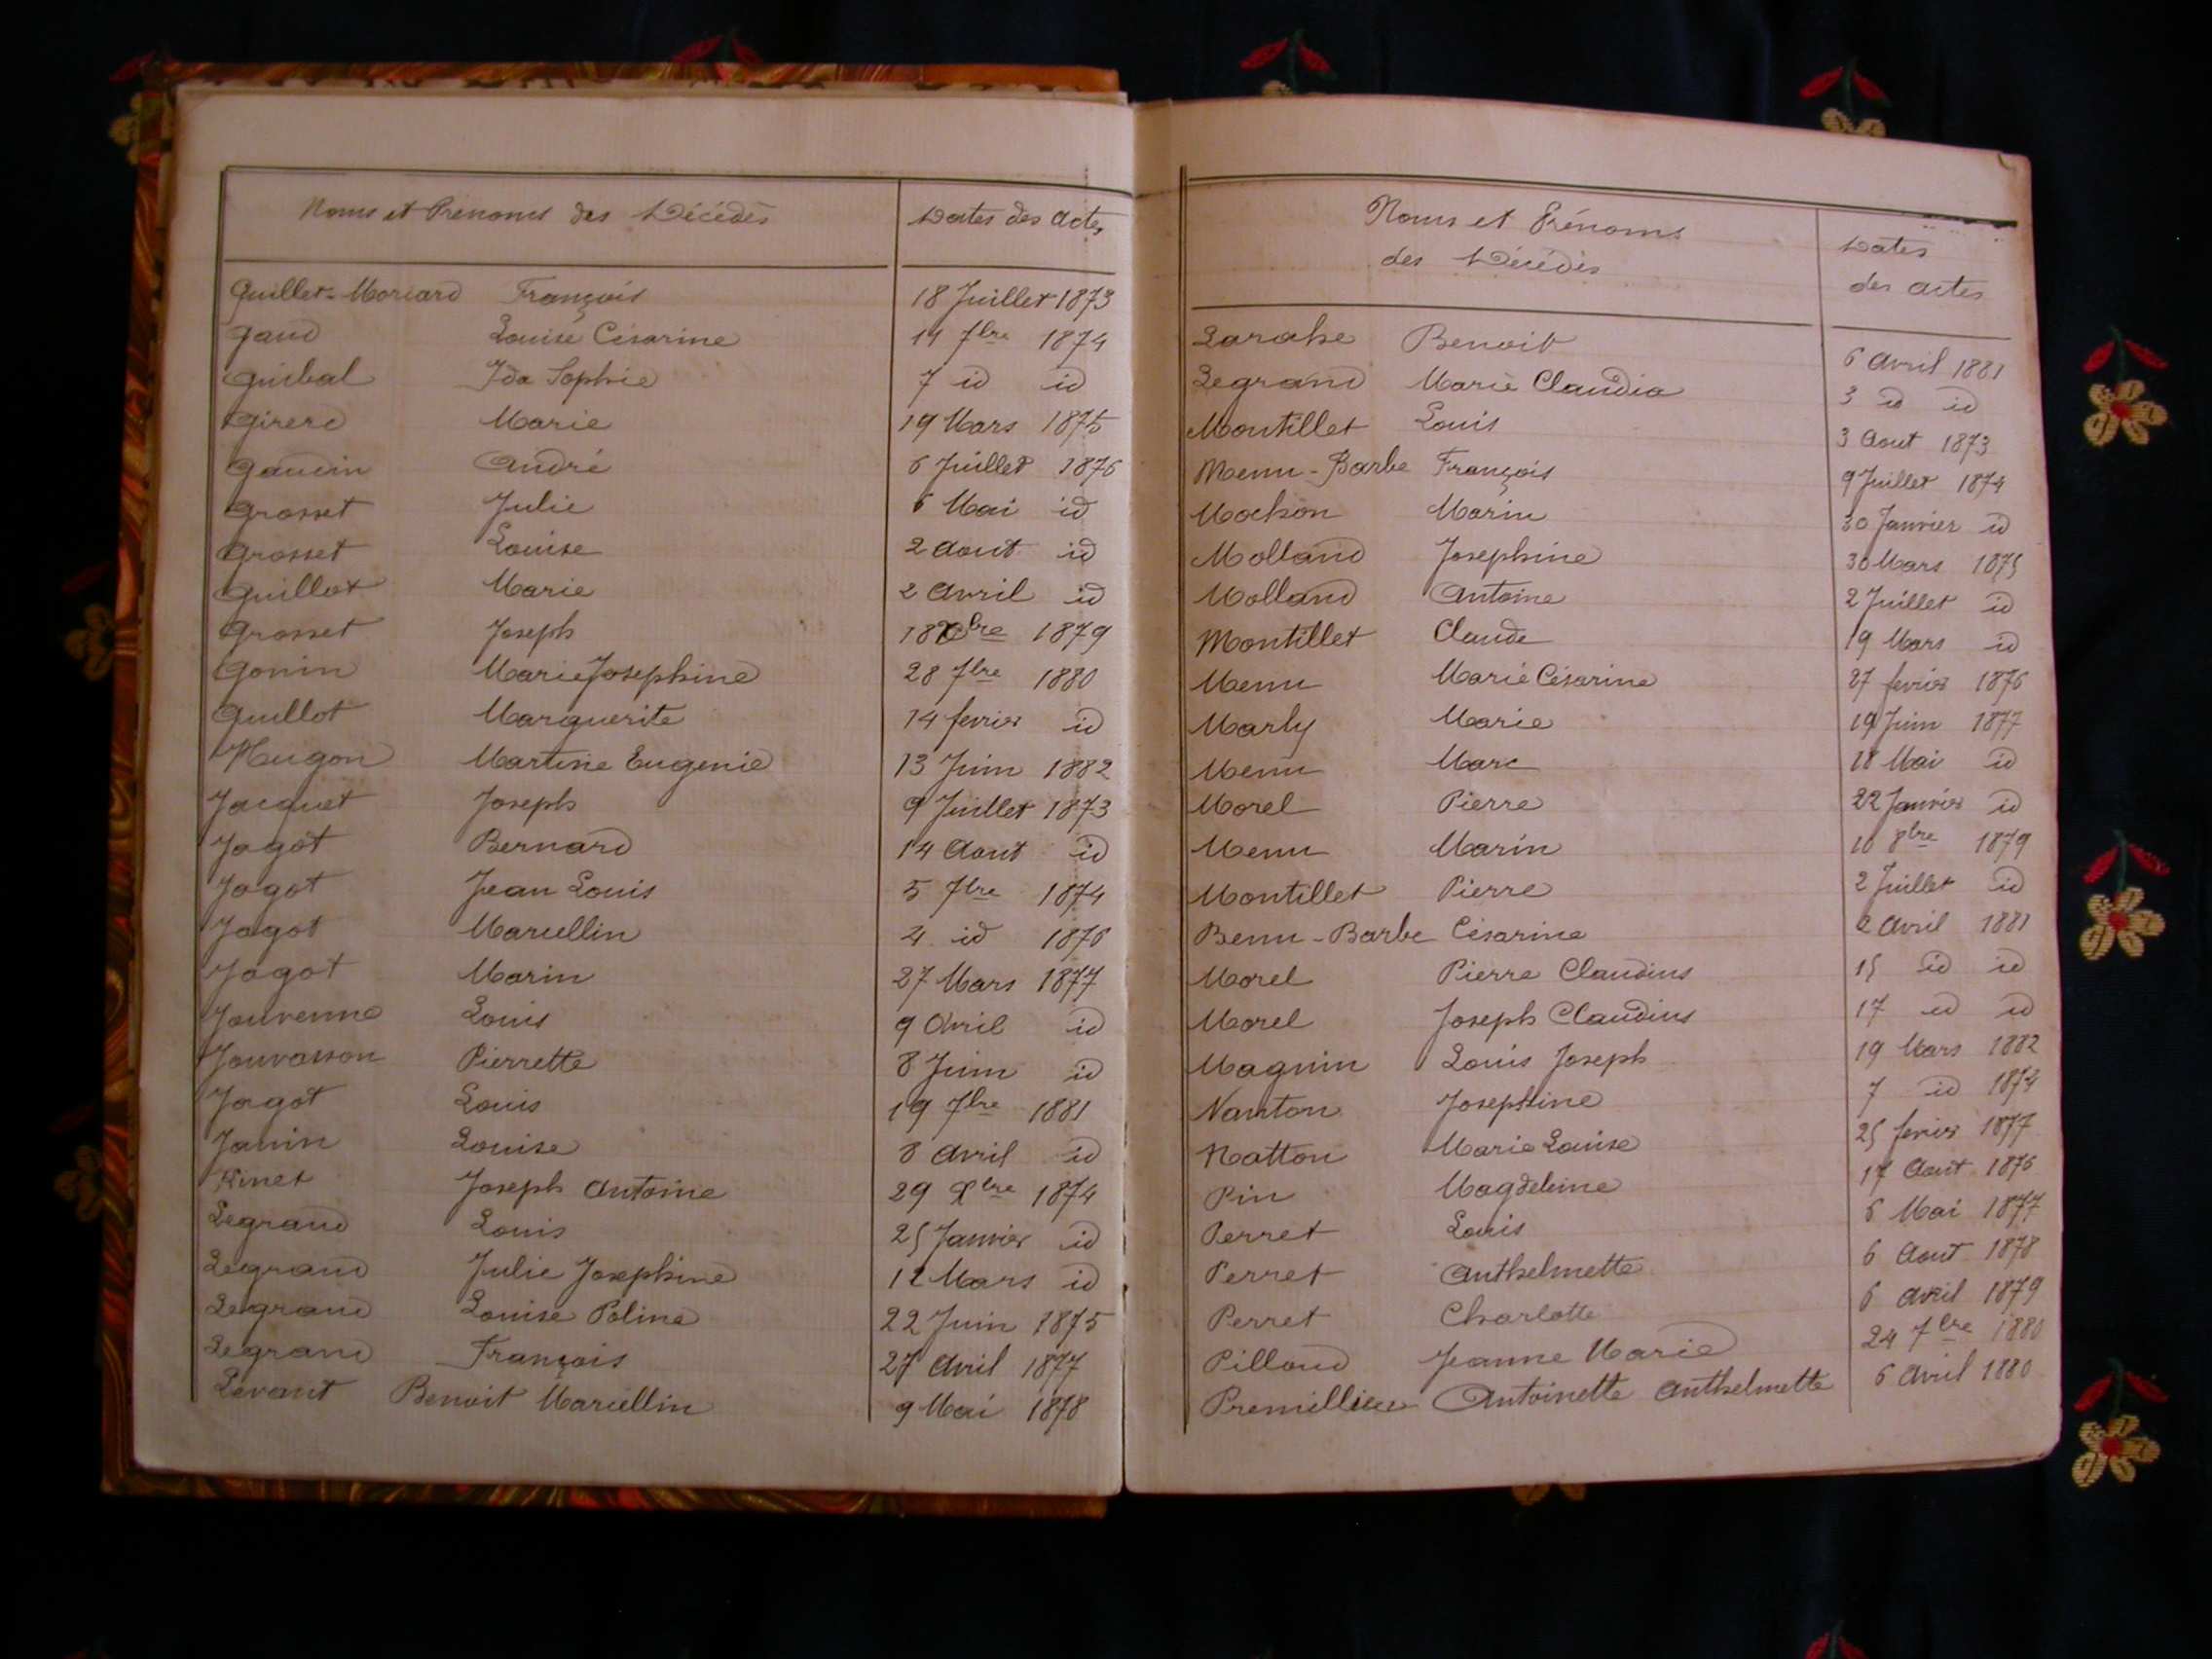 Noms et Prénoms des Décédés Dates des actes
Guillet-Morsard François 18 Juillet 1873
Gaud Louise Césarine 14 7bre 1874
Guibal Ida Sophie 7 id id
Girerd Marie 19 Mars 1875
Gaudin André 6 Juillet 1876
Grosset Julie 6 Mai id
Grosset Louise 2 Aout id
Guillot Marie 2 Avril id
Grosset Joseph 18 Xbre 1879
Gonin Marie Josephine 28 7bre 1880
Guillot Marguerite 14 fevrier id
Hugon Martine Eugenie 13 Juin 1882
Jacquet Joseph 9 Juillet 1873
Jagot Bernard 14 Aout id
Jagot Jean Louis 5 7bre 1874
Jagot Marcellin 4 id 1876
Jagot Marin 27 Mars 1877
Jouvenne Louis 9 Avril id
Jouvasson Pierrette 8 Juin id
Jagot Louis 19 7bre 1881
Janin Louise 8 Avril id
Kinet Joseph Antoine 29 Xbre 1874
Legrand Louis 25 Janvier id
Legrand Julie Josephine 12 Mars id
Legrand Louise Poline 22 Juin 1875
Legrand François 27 Avril 1877
Levant Benoit Marcellin 9 Mai 1878
Noms et Prénoms
des Décédés
Dates
des actes
Benoit 6 Avril 1881
Legrand Marie Claudia 3 id id
Montillet Louis 3 Aout 1873
Menu-Barbe François 9 Juillet 1874
Mochon Marin 30 Janvier id
Molland Josephine 30 Mars 1875
Molland Antoine 2 Juillet id
Montillet Claude 19 Mars id
Menu Marie Césarine 27 fevrier 1876
Marly Marie 19 Juin 1877
Menu Marc 18 Mai id
Morel Pierre 22 Janvier id
Menu Marin 10 8bre 1879
Montillet Pierre 2 Juillet id
Benu-Barbe Césarine 2 Avril 1881
Morel Pierre Claudius 15 id id
Morel Joseph Claudius 17 id id
Magnin Louis Joseph 19 Mars 1882
Nanton Josephine 7 id 1874
Natton Marie Louise 25 fevrier 1877
Pin Magdeleine 17 Aout 1876
Perret Louis 6 Mai 1877
Perret Anthelmette 6 Aout 1878
Perret Charlotte 6 Avril 1879
Pilloud Jeanne Marie 24 7bre 1880
Premillieu Antoinette Anthelmette 6 Avril 1880